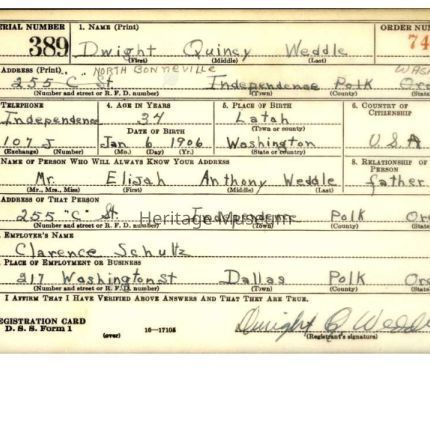 ERIAL NUMBER 1. NAME (Print) ORDER NU
389 Dwight Quincy Weddle 74
(First) (Middle) (Last)
ADDRESS (Print) NORTH BONNEVILLE WASH
255 "C" St. Independence Polk Ore
(Number and street or R. F. D. number) (Town) (County)
TELEPHONE 4. AGE IN YEARS 5. PLACE OF BIRTH 6. COUNTRY OF
CITIZENSHIP
Independence 34 Latah
DATE OF BIRTH (Town or county)
107 J Jan 6 1906 Washington U.S.A
(Exchange) (Number) (Mo.) (Day) (Yr.) (State or country)
NAME OF PERSON WHO WILL ALWAYS KNOW YOUR ADDRESS 8. RELATIONSHIP OF
PERSON
Mr. Elijah Anthony Weddle father
(Mr., Mrs., Miss) (First) (Middle) (Last)
ADDRESS OF THAT PERSON
255 "C" St. Independence Polk Ore
Heritage Museum
(Number and street or R. F. D. number) (Town) (County)
EMPLOYER'S NAME
Clarence Schultz
PLACE OF EMPLOYMENT OR BUSINESS
217 Washington St Dallas Polk Ore
(Number and street or R. F. D. number) (Town) (County)
I AFFIRM THAT I HAVE VERIFIED ABOVE ANSWERS AND THAT THEY ARE TRUE.
EGISTRATION CARD
D. S. S. Form 1 (over) 16—17105 Dwight Q Wedd
(Registrant's signature)